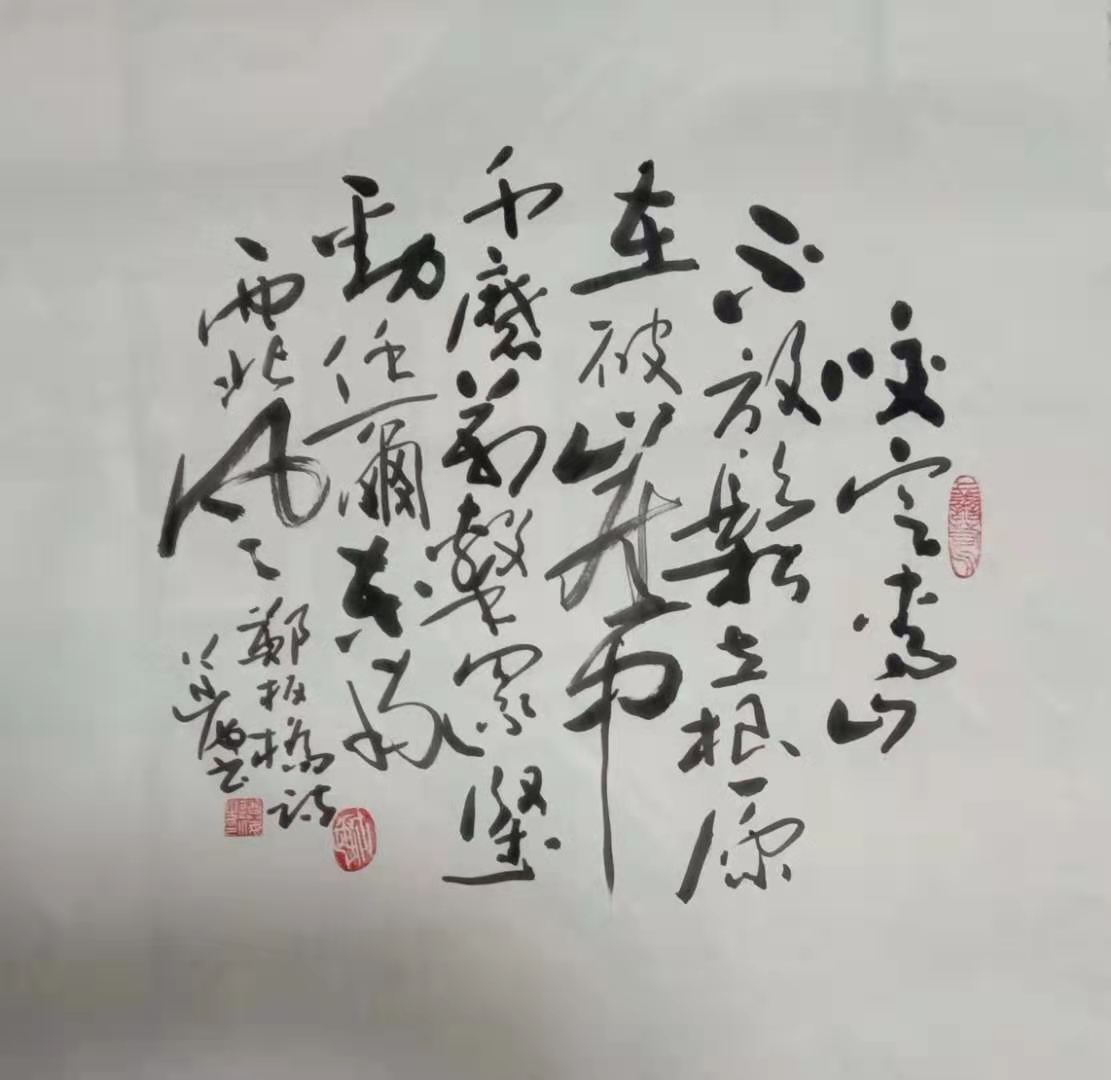 咬定青山
不放鬆立根原
在破崖中
千磨萬擊還堅
勁任爾東南
西北風
鄭板橋詩
書